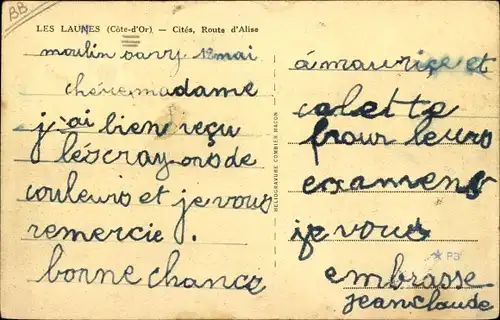 BB
LES LAUMES (Côte-d'Or). — Cités, Route d'Alise
moulin 12 mai
chère madame
j'ai bien reçu
léscrayons de
couleurs et je vous
remercie.
bonne chance
HELIOGRAVURE COMBIER MACON
á maurice et
colette
pour leurs
examens
je vous
embrasse
jeanclaude